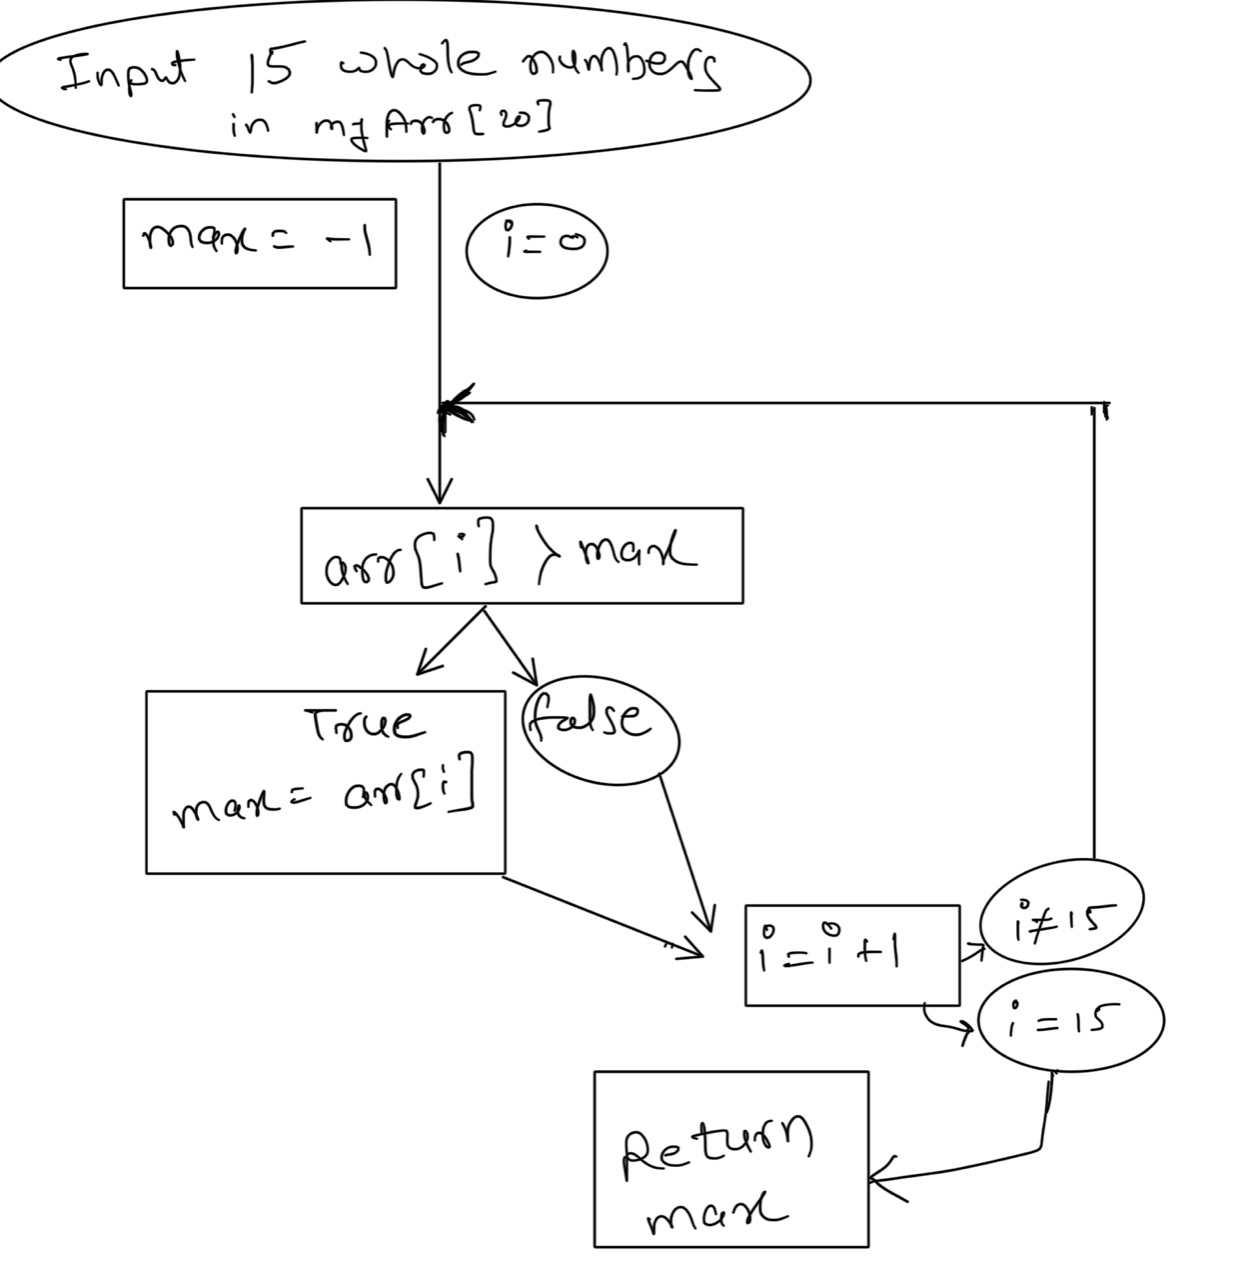 Input 15 whole numbers
in myArr[20]
max = -1
i=0
arr[i] > max
True
max = arr[i]
false
i=i+1
i≠15
i=15
Return
max